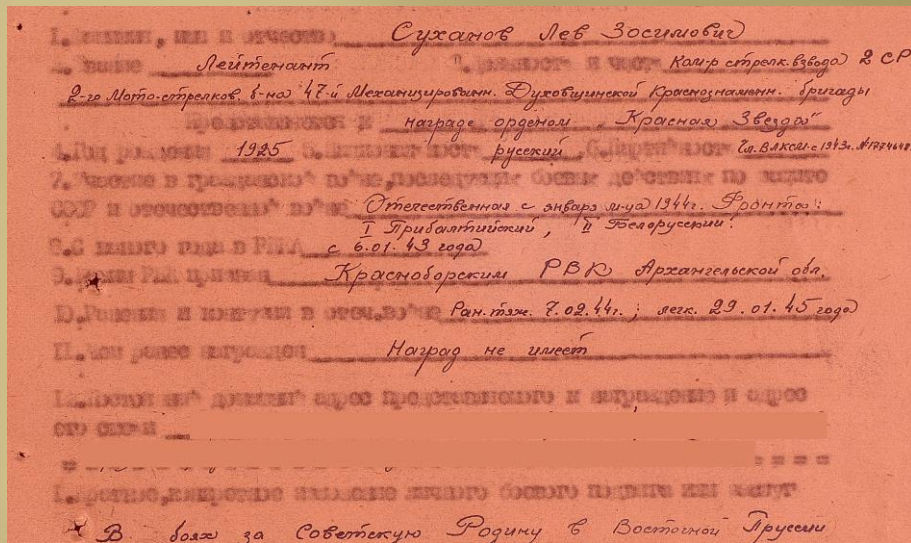 1. Фамилия, имя и отчество Суханов Лев Зосимович
2. Звание Лейтенант 3. Должность и часть Ком-р стрелк. взвода 2 СР
2-го Мото-стрелков. б-на 47-й Механизированн. Духовщинской Краснознаменн. бригады
Представляется к награде орденом „Красная Звезда"
4. Год рождения 1925 5. Национальность русский 6. Партийность Чл. ВЛКСМ с 1943г.
7. Участие в гражданской войне, последующих боевых действиях по защите
СССР и отечественной войне Отечественная с января м-ца 1944г. Фронта:
I Прибалтийский, II Белорусский.
8. С какого года в РККА с 6.01.43 года
9. Каким РВК призван Красноборским РВК Архангельской обл.
10. Ранения и контузии в отеч. войне Ран. тяж. 7.02.44г.; легк. 29.01.45 года
11. Чем ранее награжден Наград не имеет
12. Постоянный домашний адрес представляемого к награждению и адрес
его семьи
1. Краткое, конкретное изложение личного боевого подвига или заслуг
В боях за Советскую Родину в Восточной Пруссии